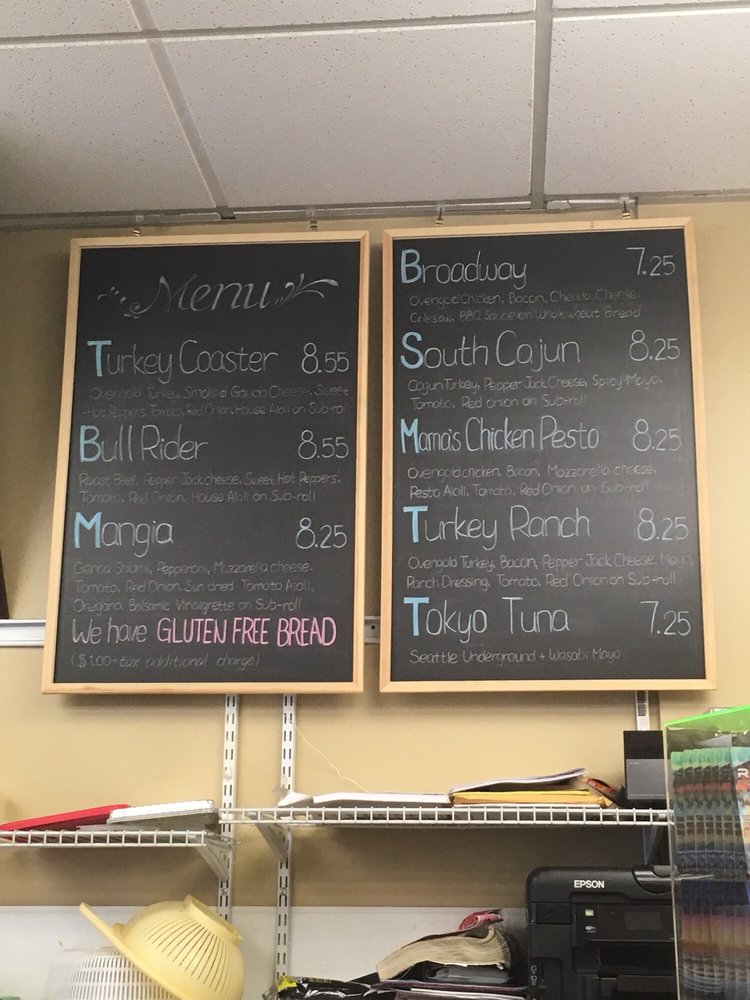 Menu
Turkey Coaster 8.55
Ovengold Turkey, Smoked Gouda Cheese, Sweet
Hot Peppers, Tomato, Red Onion, House Aioli on Sub-roll
Bull Rider 8.55
Roast Beef, Pepper Jack cheese, Sweet Hot Peppers,
Tomato, Red Onion, House Aioli on Sub-roll
Mangia 8.25
Genoa Salami, Pepperoni, Mozzarella cheese,
Tomato, Red Onion, Sun dried Tomato Aioli,
Oregano, Balsamic Vinaigrette on Sub-roll
We have GLUTEN FREE BREAD
($1.00+tax additional charge)
Broadway 7.25
Ovengold Chicken, Bacon, Chedda Cheese,
Coleslaw, BBQ Sauce on Whole wheat Bread
South Cajun 8.25
Cajun Turkey, Pepper Jack Cheese, Spicy Mayo,
Tomato, Red onion on Sub-roll
Mama's Chicken Pesto 8.25
Ovengold chicken, Bacon, Mozzarella cheese,
Pesto Aioli, Tomato, Red Onion on Sub-roll
Turkey Ranch 8.25
Ovengold Turkey, Bacon, Pepper Jack Cheese, Mayo,
Ranch Dressing, Tomato, Red Onion on Sub-roll
Tokyo Tuna 7.25
Seattle Underground + Wasabi Mayo
EPSON